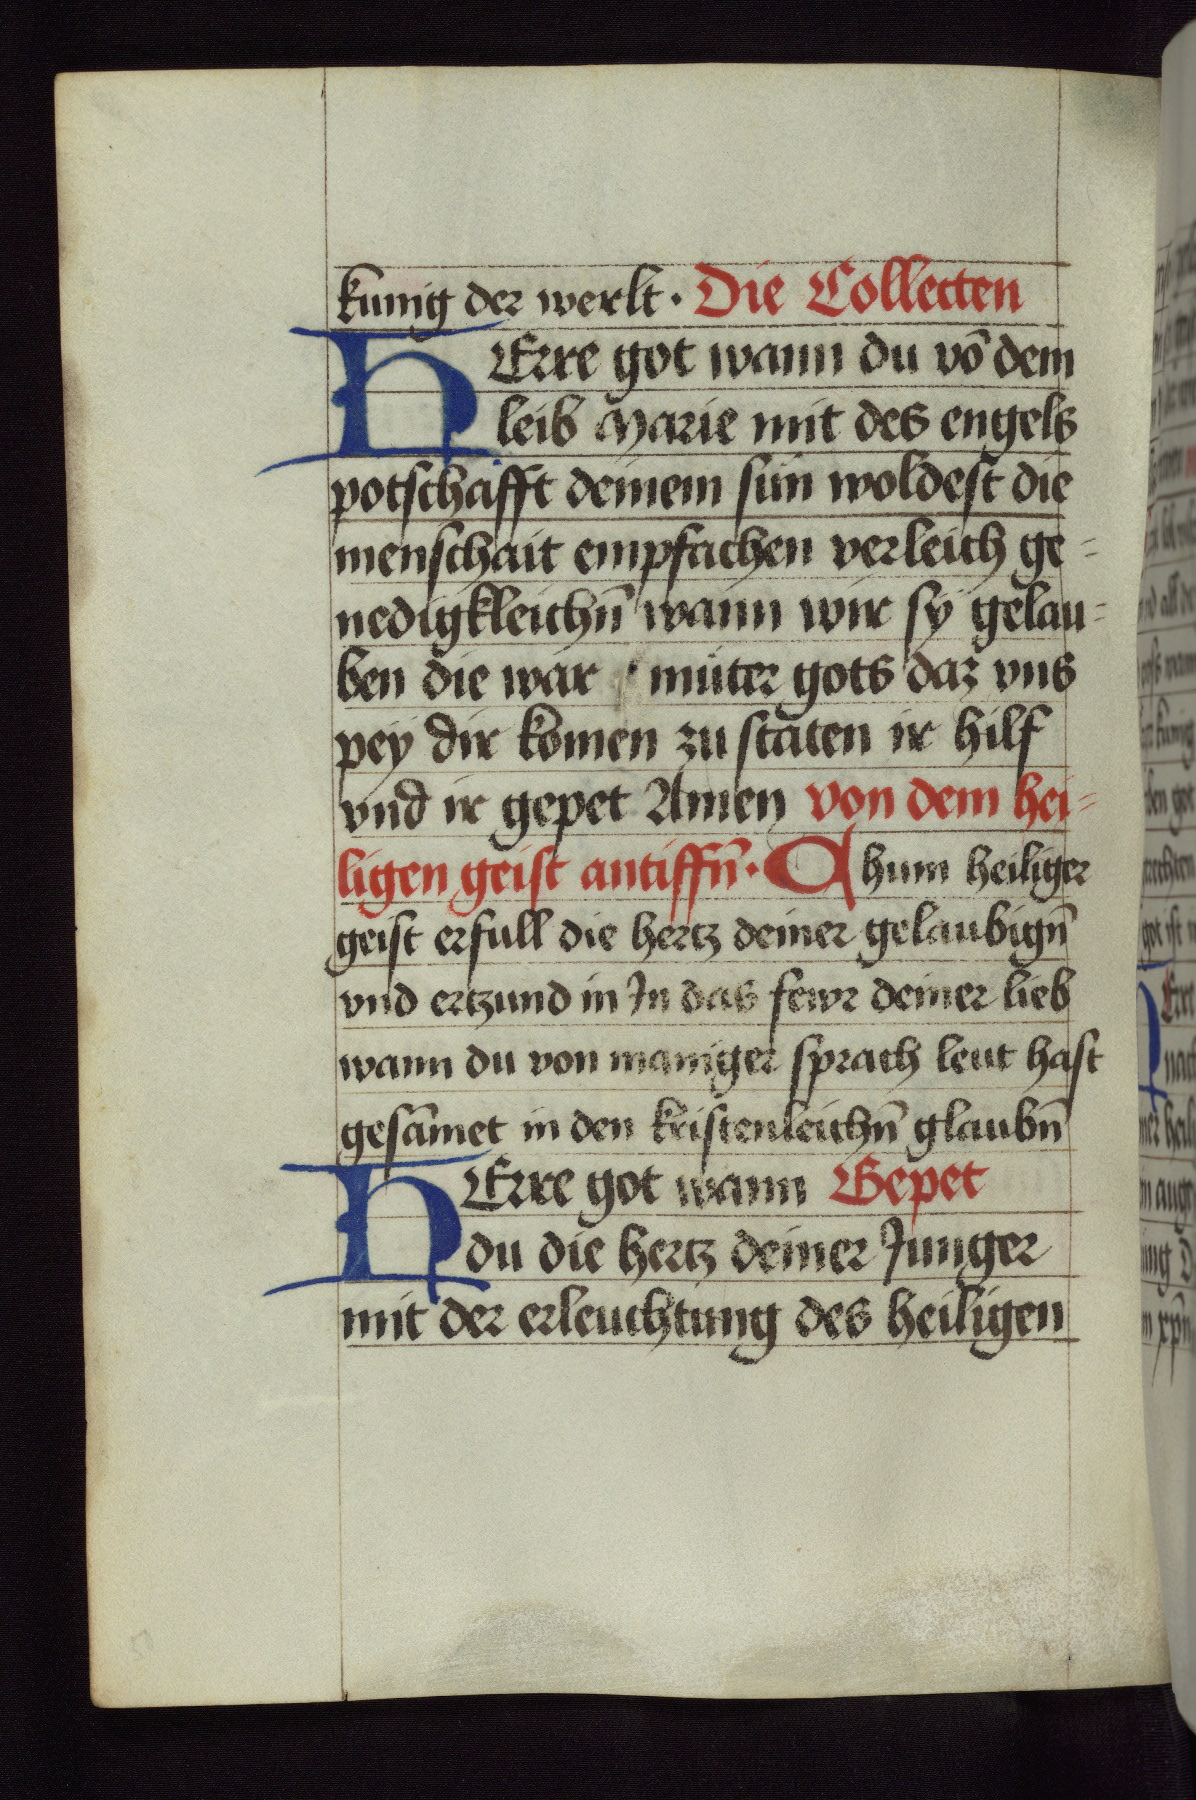 kunig der werlt · Die Collecten
HErre got wann du vō dem
leib Marie mit des engels
potschafft deinem sun woldest die
menschait empfachen verleich ge=
nedigkleichn̄ wann wir sÿ gelau=
ben die war muter gots daz vns
peÿ dir komen zu staten ir hilf
vnd ir gepet Amen von dem hei=
ligen geist antiffn̄ · Chum heiliger
geist erfull die hertz deiner gelaubign̄
vnd ertzund in In das fewr deiner lieb
wann du von maniger sprach leut hast
gesāmet in den kristenleichn̄ glaubn̄
HErre got wann Gepet
du die hertz deiner Junger
mit der erleuchtung des heiligen